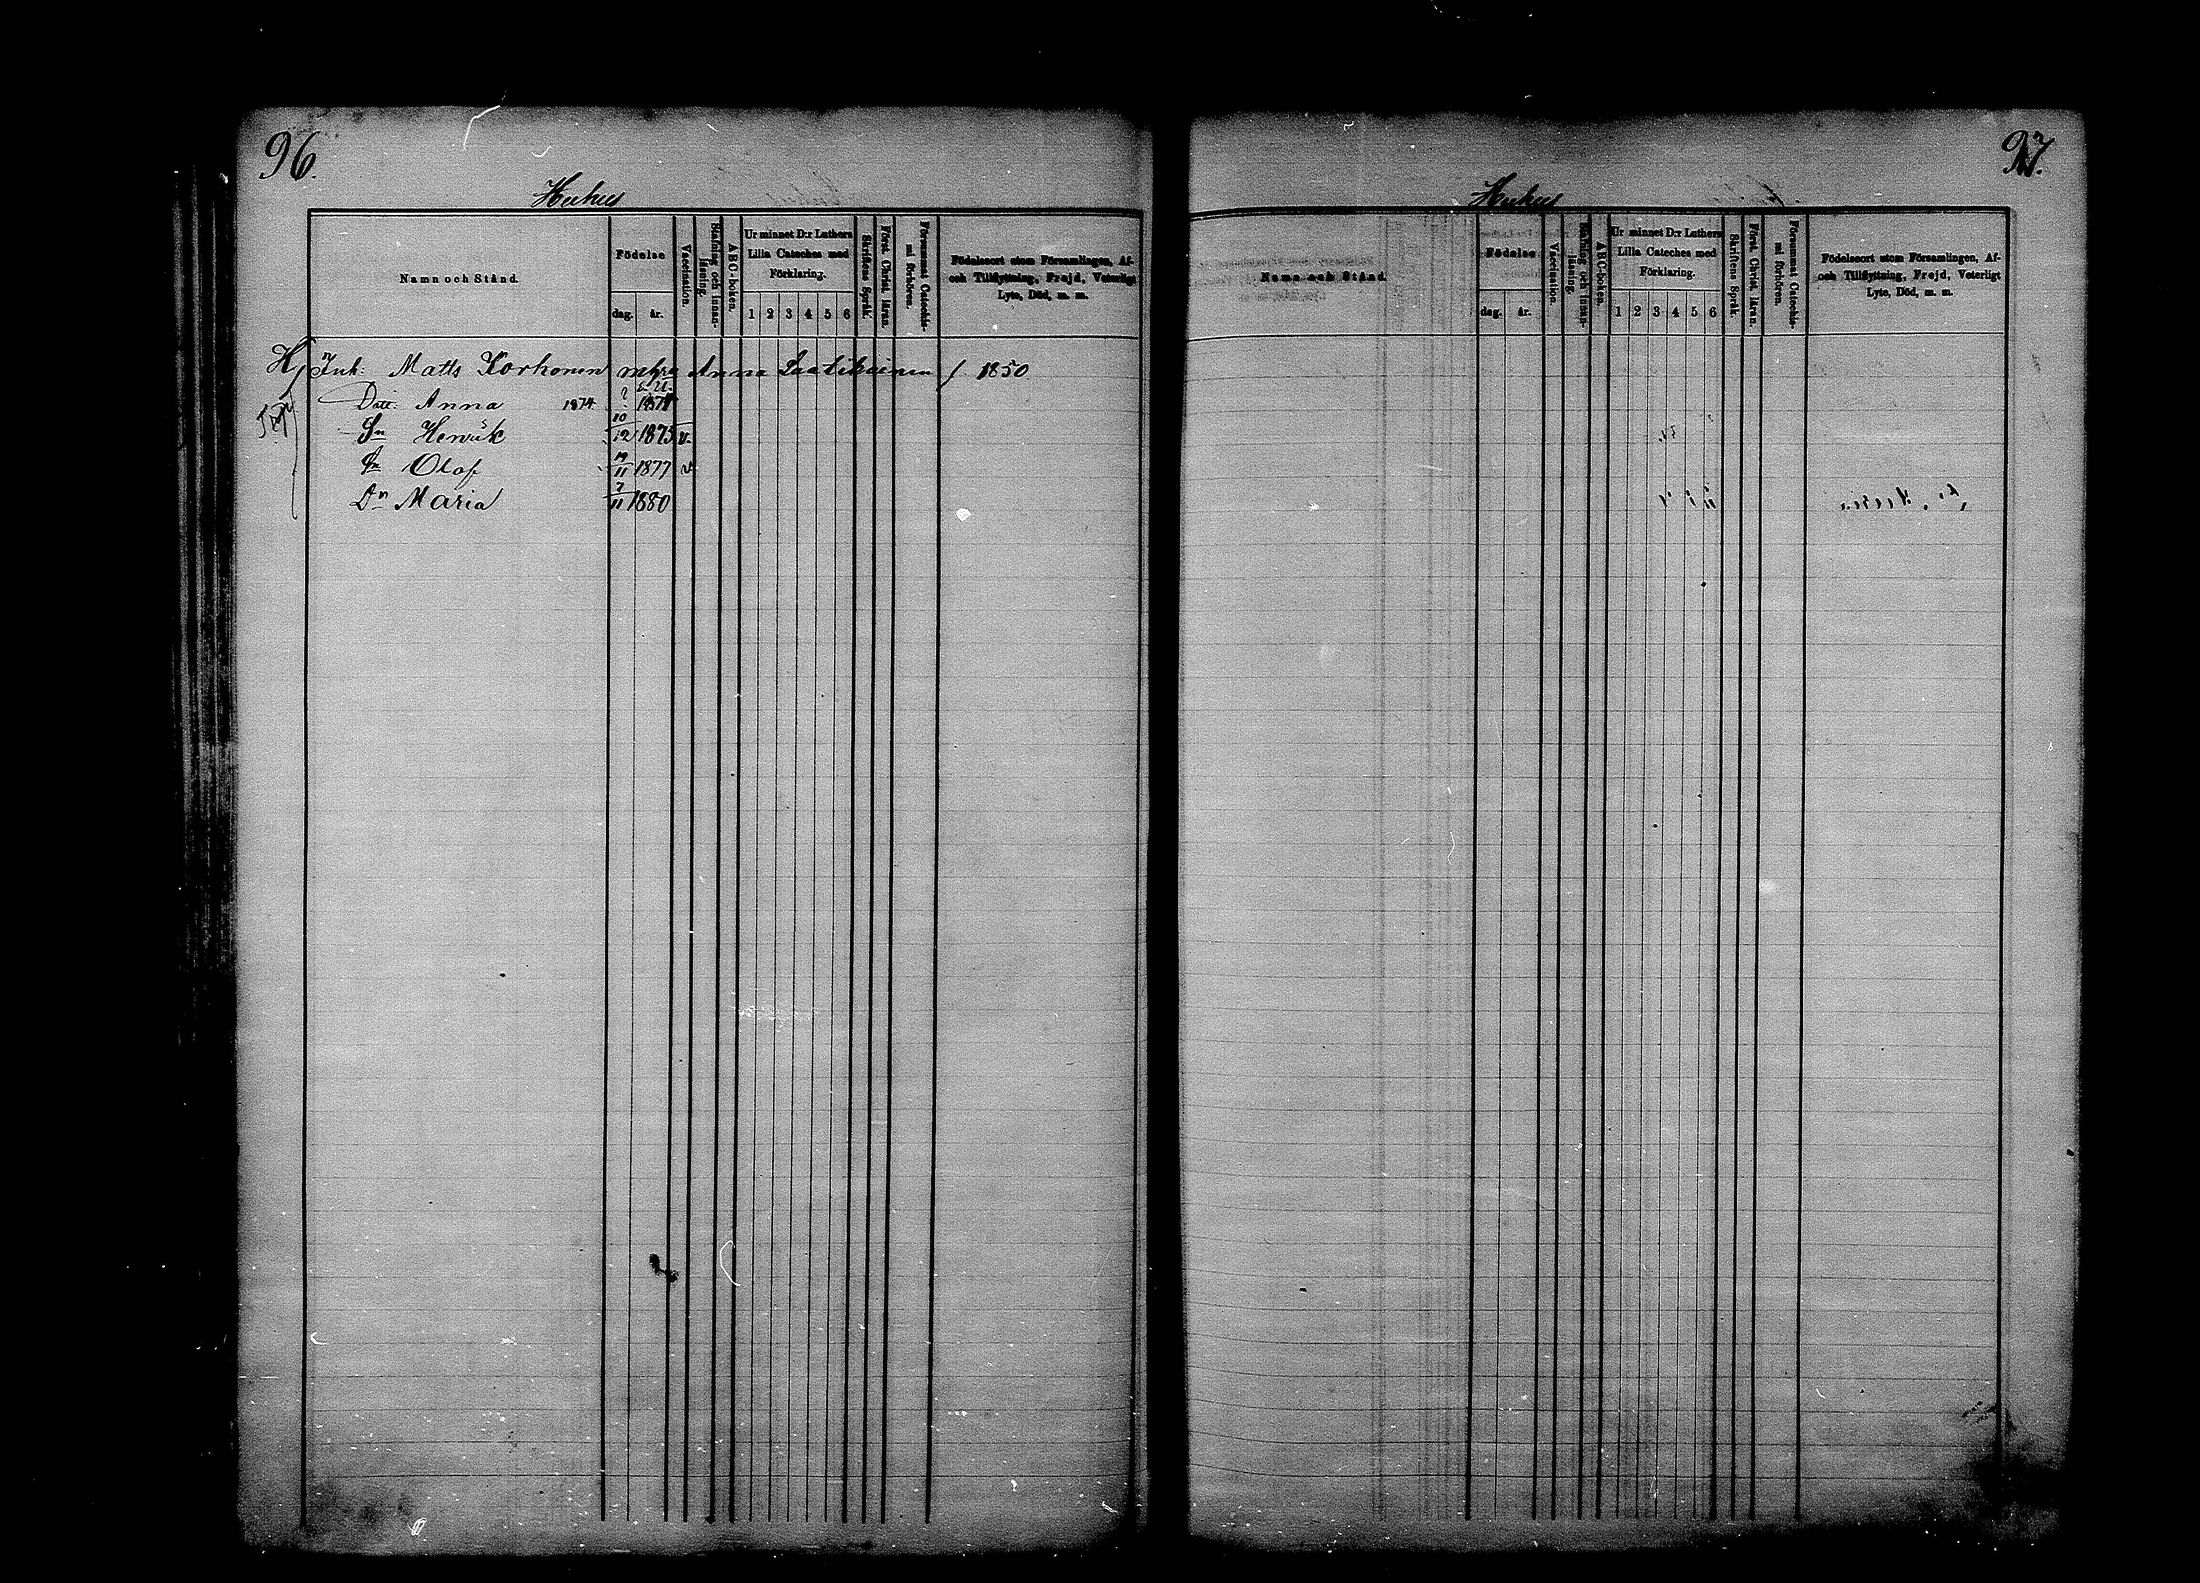 96.
Huhus
Namn och Stånd.
Födelse
dag. år.
Vaccination.
Stafning och innan-läsning.
ABC-boken.
Ur minnet D:r Luthers Lilla Cateches med Förklaring.
1 2 3 4 5 6
Skriftens Språk.
Först. Christ. läran.
Försummat Catechis-mi förhören.
Födelseort utom Församlingen, Af-
och Tillflyttning, Frejd, Veterligt
Lyte, Död, m. m.
Inh: Matts Korhonen Anna Laatikainen f 1850
Dtr. Anna 1874. ?
Sn Henrik 10/12 1875 v.
Sn Olof 19/11 1877 v
Dr Maria 7/11 1880
97.
Huhus
Namn och Stånd.
Födelse
dag. år.
Vaccination.
Stafning och innan-läsning.
ABC-boken.
Ur minnet D:r Luthers Lilla Cateches med Förklaring.
1 2 3 4 5 6
Skriftens Språk.
Först. Christ. läran.
Försummat Catechis-mi förhören.
Födelseort utom Församlingen, Af-
och Tillflyttning, Frejd, Veterligt
Lyte, Död, m. m.